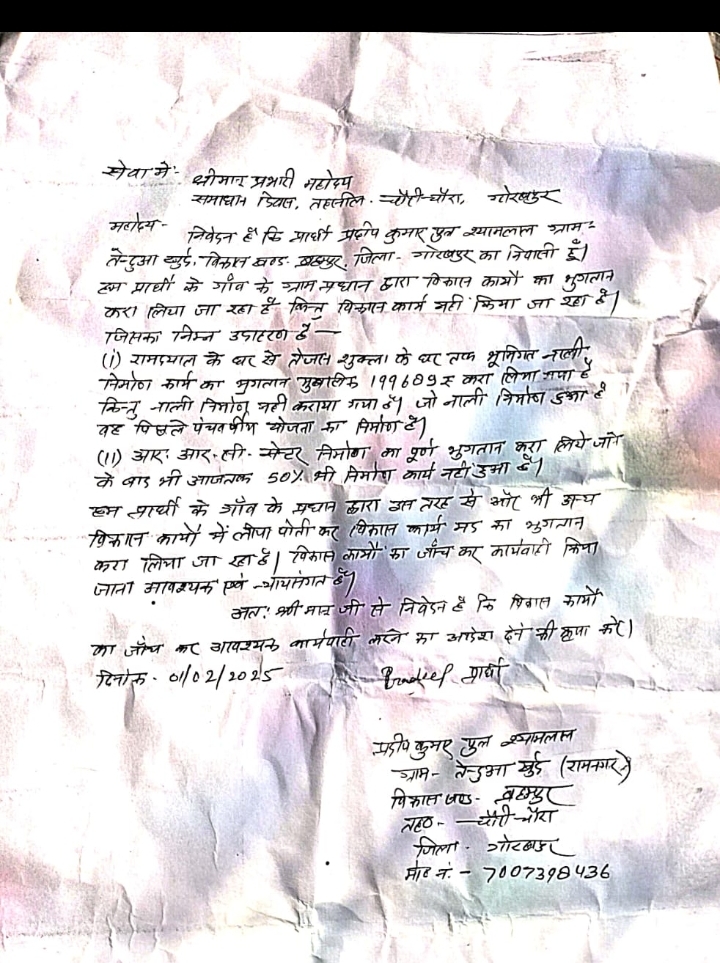 सेवा में:-
श्रीमान प्रभारी महोदय
समाधान दिवस, तहसील - चौरी-चौरा, गोरखपुर
महोदय- निवेदन है कि प्रार्थी प्रदीप कुमार पुत्र श्यामलाल ग्राम-
तेन्दुआ खुर्द, विकास खण्ड- ब्रह्मपुर, जिला- गोरखपुर का निवासी हूँ।
हम प्रार्थी के गाँव के ग्राम प्रधान द्वारा विकास कार्यो का भुगतान
करा लिया जा रहा है किन्तु विकास कार्य नही किया जा रहा है।
जिसका निम्न उदाहरण है —
(i) रामदयाल के घर से तेजस शुक्ला के घर तक भूमिगत नाली
निर्माण कार्य का भुगतान मुबलिक 199689 रु करा लिया गया है
किन्तु नाली निर्माण नही कराया गया है। जो नाली निर्माण हुआ है
वह पिछले पंचवर्षीय योजना का निर्माण है।
(ii) आर. आर. सी. सेन्टर निर्माण का पूर्ण भुगतान करा लिये जाने
के बाद भी आजतक 50% भी निर्माण कार्य नही हुआ है।
हम प्रार्थी के गाँव के प्रधान द्वारा इस तरह से और भी अन्य
विकास कार्यो में लीपा पोती कर विकास कार्य मद का भुगतान
करा लिया जा रहा है। विकास कार्यो का जाँच कर कार्यवाही किया
जाना आवश्यक एवं न्यायसंगत है।
अत: श्रीमान जी से निवेदन है कि विकास कार्यो
का जाँच कर आवश्यक कार्यवाही करने का आदेश देने की कृपा करें।
दिनांक - 01/02/2025 Pradeep प्रार्थी
प्रदीप कुमार पुत्र श्यामलाल
ग्राम- तेन्दुआ खुर्द (रामनगर)
विकास खण्ड- ब्रह्मपुर
तह०- चौरी-चौरा
जिला - गोरखपुर
मोब नं. - 7007398436